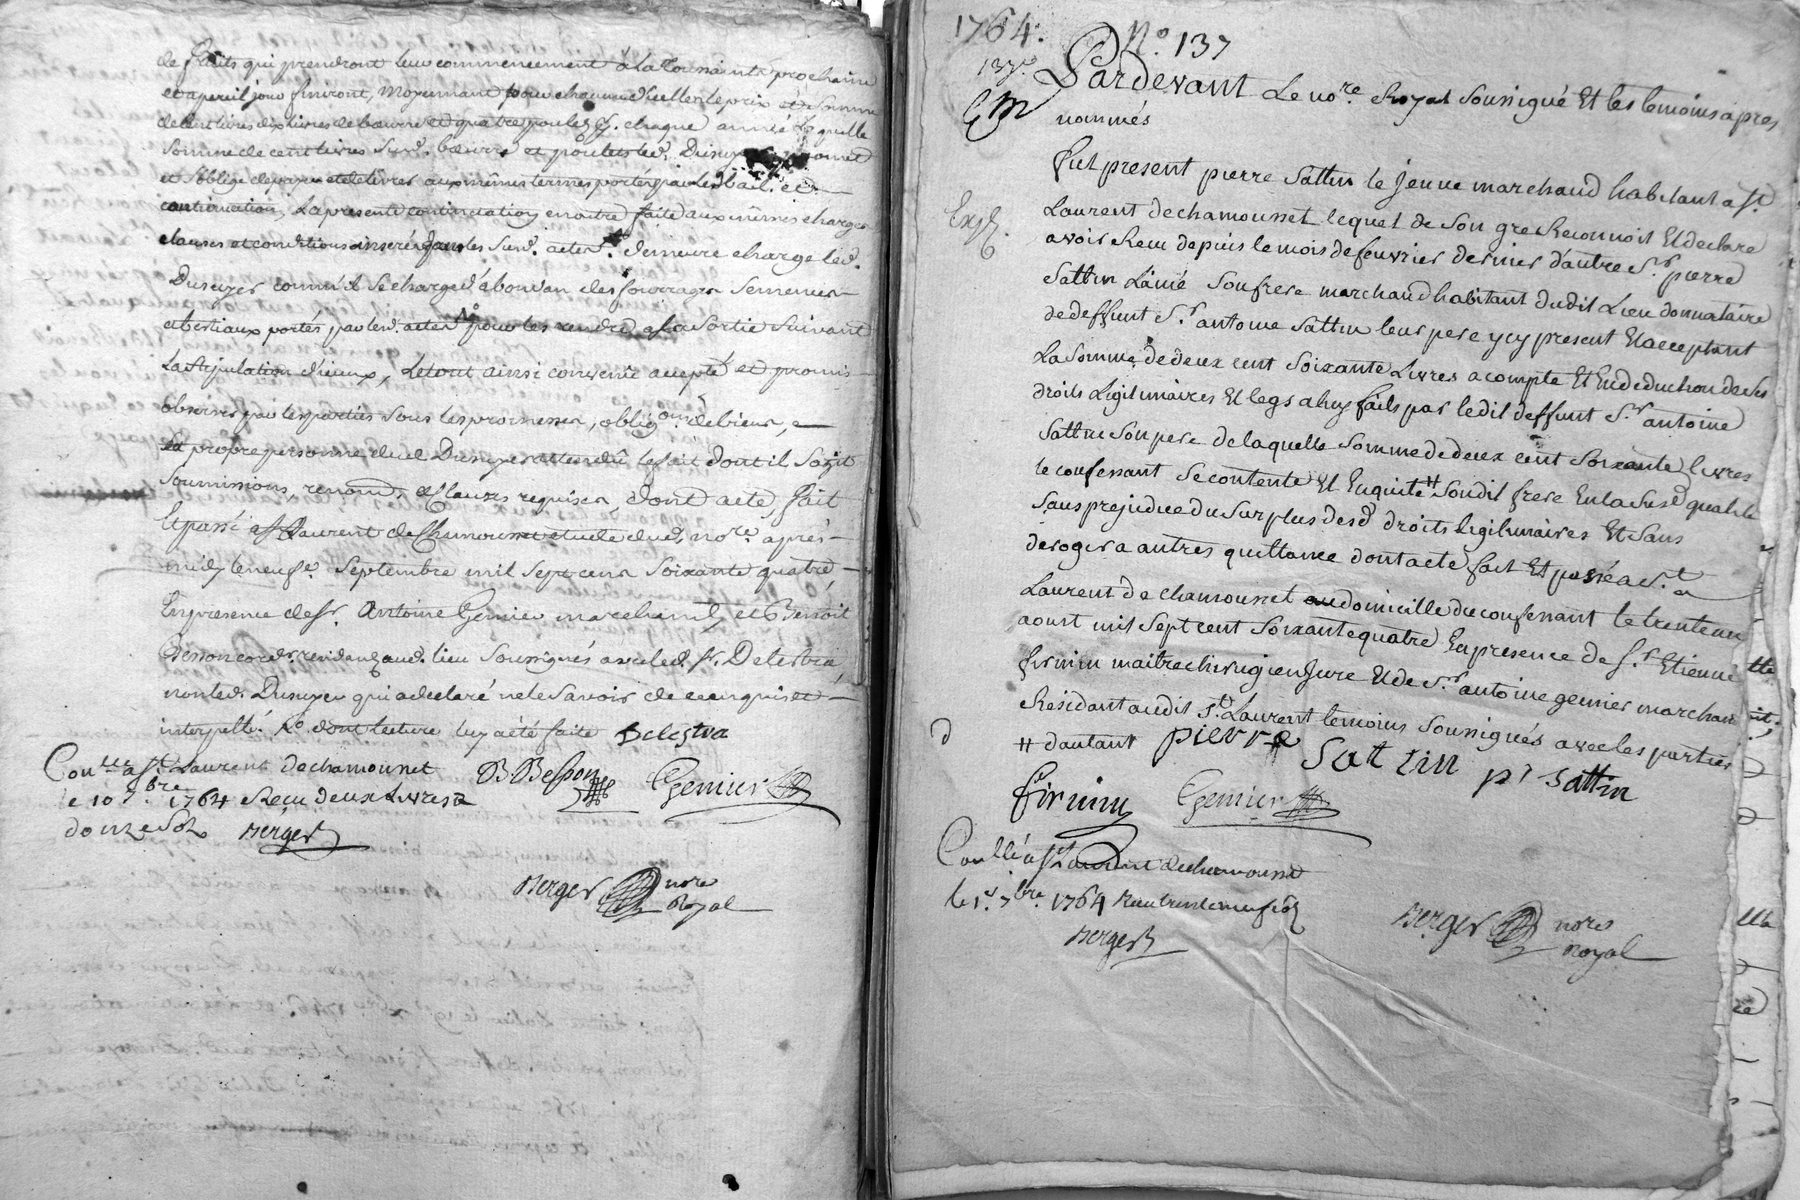 de fruits qui prendront leur commencement a la Toussaints prochaine
et a pareil jour finiront, moyennant pour chacune d'icelles le prix et somme
de cent livres dix livres de beurre et quatre poulets &. chaque année Laquelle
Somme de cent livres Surd. beurre et poulets led. Dusuyer promet
et s'oblige de payer et delivrer aux mêmes termes portés par led. bail. et
continuation, La presente continuation en outre faite aux mêmes charges
clauses et conditions inserés dans les Surd. actes. demeure charge led.
Dusuyer comm'il se charge d'abondan des fourrages Semences
et bestiaux portés par led. actes pour les rendre a sa Sortie Suivant
La Stipulation d'iceux, Letout ainsi convenû accepté et promis
observer par les parties Sous les promesses, obligons. de biens, e
et propre personne dud. Dusuyer attendû le fait dont il Sagit
Soumissions, renons. & Clauses requises, dont acte, fait
et passé a St Laurent de Chamousset etude dud. nore. après
midy le neufe. Septembre mil Sept cens Soixante quatre
En presence de Sr. Antoine Genier marchand, et Benoit
Besson cordr. residants aud. lieu Soussignés avec led. Sr. Delestra,
non led. Dusuyer qui a declaré ne le Savoir de ce enquis et
interpellé. Ro dont lecture luy a été faite Delestra
Conller a St Laurent de chamousset
le 10 7.bre 1764 Recu deux Livres
douze Sols Berger
BBesson Genier
Berger nore
Royal
1764. No. 137
137e. Pardevant Le nore. Royal Soussigné Et les temoins apres
nommés
fut present pierre Sattin le Jeune marchand habitant a St.
Exp.
Laurent de chamousset lequel de Son gre Reconnoit Et declare
avoir Recu depuis le mois de fevrier dernier d'autre Sr. pierre
Sattin Lainé Son frere marchand habitant dudit Lieu donnataire
de deffunt Sr. antoine Sattin leur pere ycy present Et acceptant
La Somme de deux cent Soixante Livres a compte Et En deduction de Ses
droits Legitimaires Et legs a luy faits par ledit deffunt Sr. antoine
Sattin Son pere de laquelle Somme de deux cent Soixante livres
le confessant Se contente Et En quitte # Sondit frere En la Susd. qualite
Sans prejudice du Surplus desd. droits Legitimaires Et Sans
deroger a autres quittance dont acte fait Et passé a St.
Laurent de chamousset au domicille du confessant le trente un
aoust mil Sept cent Soixante quatre En presence de Sr. Etienne
firmin maitre chirugien Jure Et de Sr. antoine genier marchan
Residant audit St. Laurent temoins Soussignés avec les parties
# dautant pierre Sattin pr Sattin
firmin Genier
Conllé a St Laurent de chamousset
le 1er. 7bre. 1764 Recu trente neuf sols
Berger
Berger nore
Royal